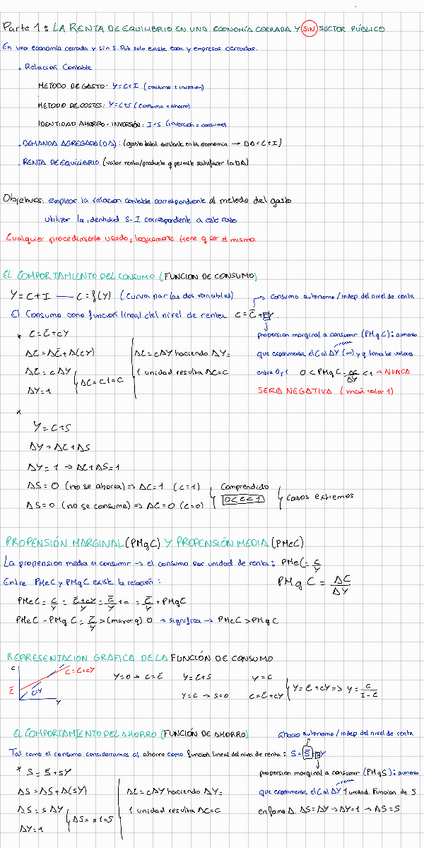 Parte 1: LA RENTA DE EQUILIBRIO EN UNA ECONOMÍA CERRADA Y SIN SECTOR PÚBLICO
En una economía cerrada y sin S. Púb solo existe econ y empresas cerradas.
. Relación Contable
MÉTODO DE GASTO: Y=C+I (consumo + inversión)
MÉTODO DE COSTES: Y=C+S (consumo + ahorro)
IDENTIDAD AHORRO-INVERSIÓN: I=S (inversión = consumo)
. DEMANDA AGREGADA (DA): (gasto total existente en la economía → DA=C+I)
. RENTA DE EQUILIBRIO (valor renta/producto q permite satisfacer la DA)
Objetivos: emplear la relación contable correspondiente al método del gasto
utilizar la identidad S-I correspondiente a este caso
Cualquier procedimiento usado, logicamente tiene q ser el mismo
EL COMPORTAMIENTO DEL CONSUMO (FUNCIÓN DE CONSUMO)
Y=C+I — C=f(Y) (curva por las dos variables)
Consumo autónomo / indep del nivel de renta
El Consumo como función lineal del nivel de renta: C=C̄+cY
* C=C̄+cY
propensión marginal a consumir (PMgC): aumento
ΔC=ΔC̄+Δ(cY)
ΔC=cΔY haciendo ΔY=
que experimenta el C al ΔY
ΔC=cΔY
1 unidad resulta ΔC=C
entre 0 y 1 0<PMgC=ΔC/ΔY<1 → NUNCA
ΔY=1
ΔC=c·1=C
SERÁ NEGATIVA
Y=C+S
ΔY=ΔC+ΔS
ΔY=1 → ΔC+ΔS=1
ΔS=0 (no se ahorra) ⇒ ΔC=1 (c=1)
Comprendido
0≤c≤1
Casos extremos
ΔS=0 (no se consume) ⇒ ΔC=0 (c=0)
PROPENSIÓN MARGINAL (PMgC) Y PROPENSIÓN MEDIA (PMeC)
La propensión media a consumir → el consumo por unidad de renta: PMeC=C/Y
Entre PMeC y PMgC existe la relación:
PMgC=ΔC/ΔY
PMeC=C/Y=C̄+cY/Y=C̄/Y+c=C̄/Y+PMgC
PMeC-PMgC=C̄/Y>(mayor q) 0 → significa → PMeC>PMgC
REPRESENTACIÓN GRÁFICA DE LA FUNCIÓN DE CONSUMO
C
C=C̄+cY
C̄
Y
Y=0 → C=C̄
Y=C+S
Y=C
Y=C → S=0
C=C̄+cY
EL COMPORTAMIENTO DEL AHORRO (FUNCIÓN DE AHORRO)
Ahorro autónomo / indep del nivel de renta
Tal como el consumo consideramos al ahorro como función lineal del nivel de renta: S=S̄+sY
* S=S̄+sY
propensión marginal a consumir (PMgS): aumento
ΔS=ΔS̄+Δ(sY)
ΔC=cΔY haciendo ΔY=
que experimenta el C al ΔY 1 unidad. Función de S
ΔS=sΔY
1 unidad resulta ΔC=C
en forma Δ. ΔS=ΔY → ΔY=1 → ΔS=S
ΔY=1
ΔS=s·1=S